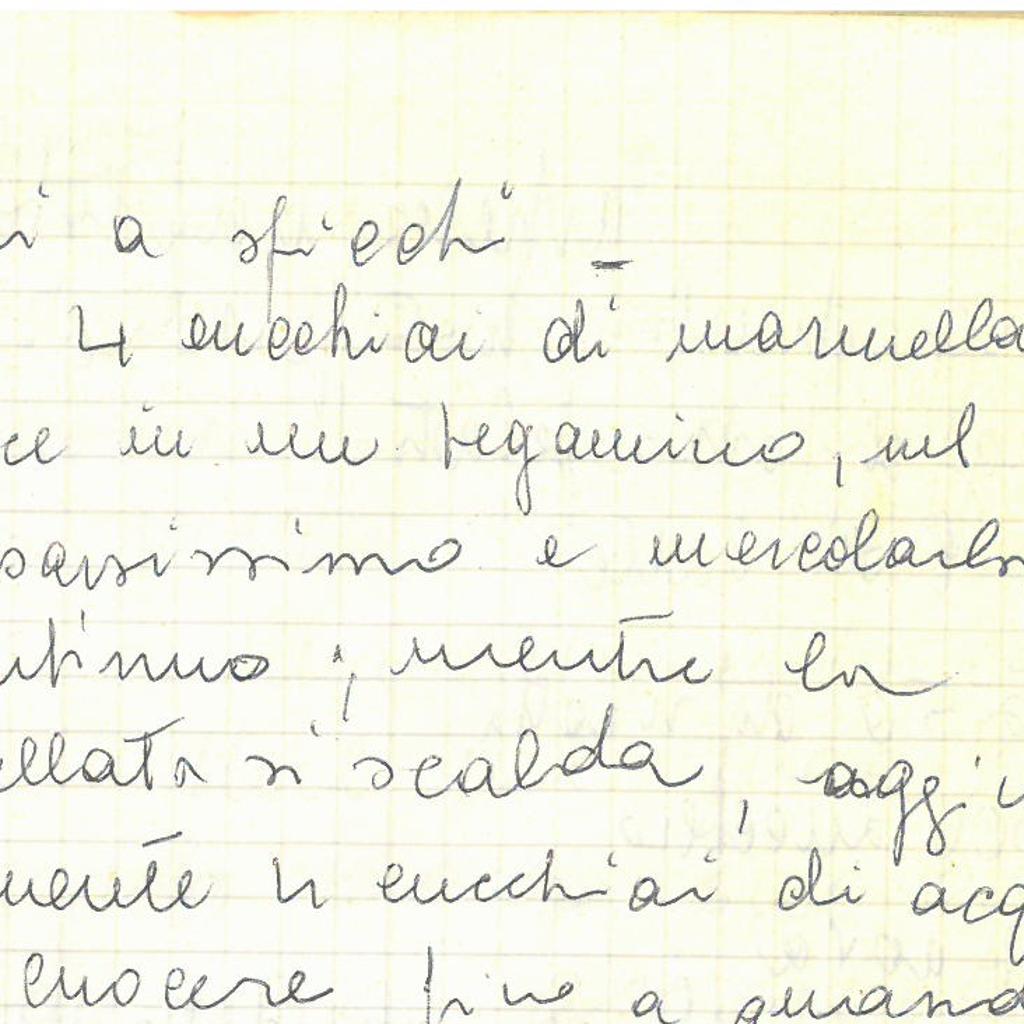 i a spicchi -
4 cucchiai di marmella
ce in un tegamino, sul
bassissimo e mescolarla
ntinuo ; mentre la
ellata si scalda, aggiu
mente 4 cucchiai di acq
cuocere fino a quand